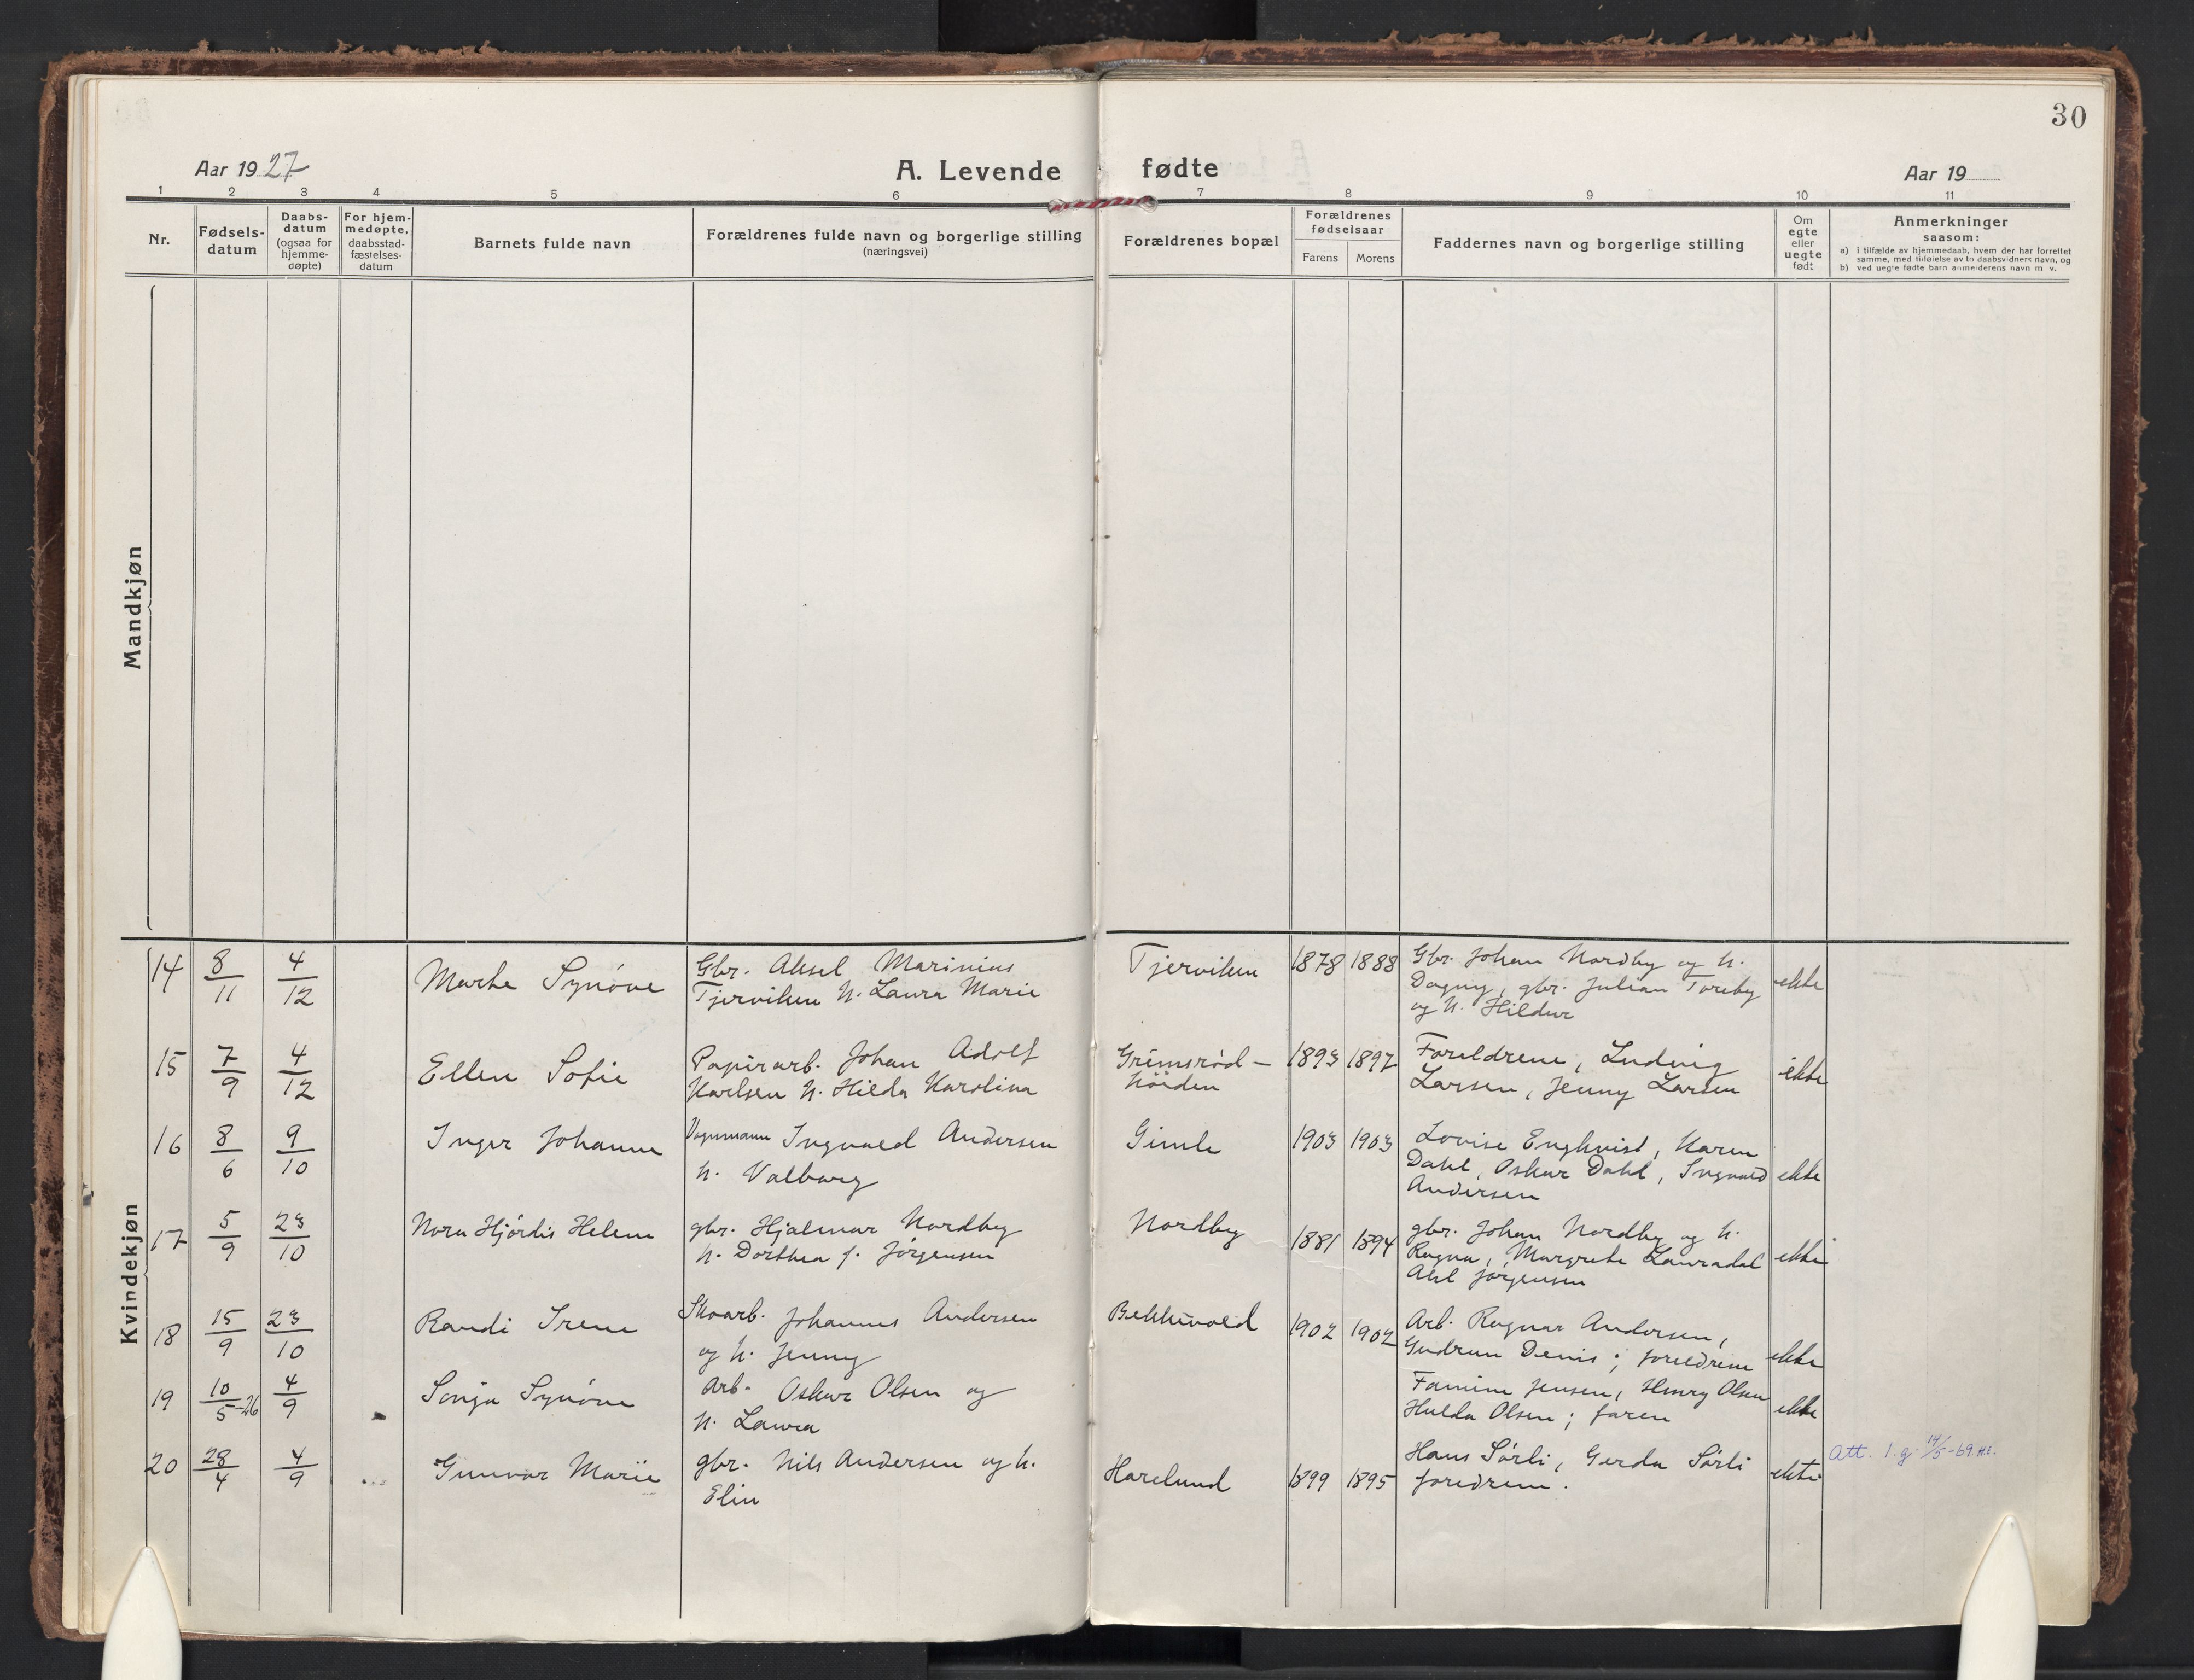 30
Aar 1927 A. Levende fødte Aar 19
1 2 3 4 5 6 7 8 9 10 11
Nr.
Fødsels-
datum
Daabs-
datum
(ogsaa for
hjemme-
døpte)
For hjem-
medøpte,
daabsstad-
fæstelses-
datum
Barnets fulde navn
Forældrenes fulde navn og borgerlige stilling
(næringsvei)
Forældrenes bopæl
Forældrenes
fødselsaar
Farens Morens
Faddernes navn og borgerlige stilling
Om
egte
eller
uegte
født
Anmerkninger
saasom:
a) i tilfælde av hjemmedaab, hvem der har forrettet
samme, med tilføielse av to daabsvidners navn, og
b) ved uegte fødte barn anmelderens navn m. v.
Mandkjøn
Kvindekjøn
14 8/11 4/12 Marte Synöve
Gbr. Aksel Marinius
Tjerviken h. Laura Marie
Tjerviken 1878 1888
Gbr. Johan Nordby og h.
Dagny, gbr. Julian Toreby
og h. Hildur
ekte
15 7/9 4/12 Ellen Sofie
Papirarb. Johan Adolf
Karlsen h. Hilda Karolina
Grimsrød-
höiden
1893 1897
Foreldrene, Ludvig
Larsen, Jenny Larsen
ekte
16 8/6 9/10 Inger Johanne
Vognmann Ingvald Andersen
h. Valborg
Gimle 1903 1903
Lovise Engkvist, Karen
Dahl, Oskar Dahl, Ingvald
Andersen
ekte
17 5/9 23/10 Nora Hjördis Helene
gbr. Hjalmar Nordby
h. Dorthea f. Jørgensen
Nordby 1881 1894
gbr. Johan Nordby og h.
Ragna, Margrete Lauradal
Jørgensen
ekte
18 15/9 23/10 Randi Irene
Skoarb. Johannes Andersen
og h. Jenny
Bekkevold 1902 1902
Arb. Ragnar Andersen,
Gudrun Denis; foreldrene
ekte
19 10/5-26 4/9 Sonja Synöve
Arb. Oskar Olsen og
h. Laura
Jensen, Henry Olsen
Hulda Olsen; faren
ekte
20 28/4 4/9 Gunvor Marie
gbr. Nils Andersen og h.
Elin
Harelund 1899 1895
Hans Sørli, Gerda Sørli
foredrene.
ekte
Att. 1. g. 14/5-69. H.E.